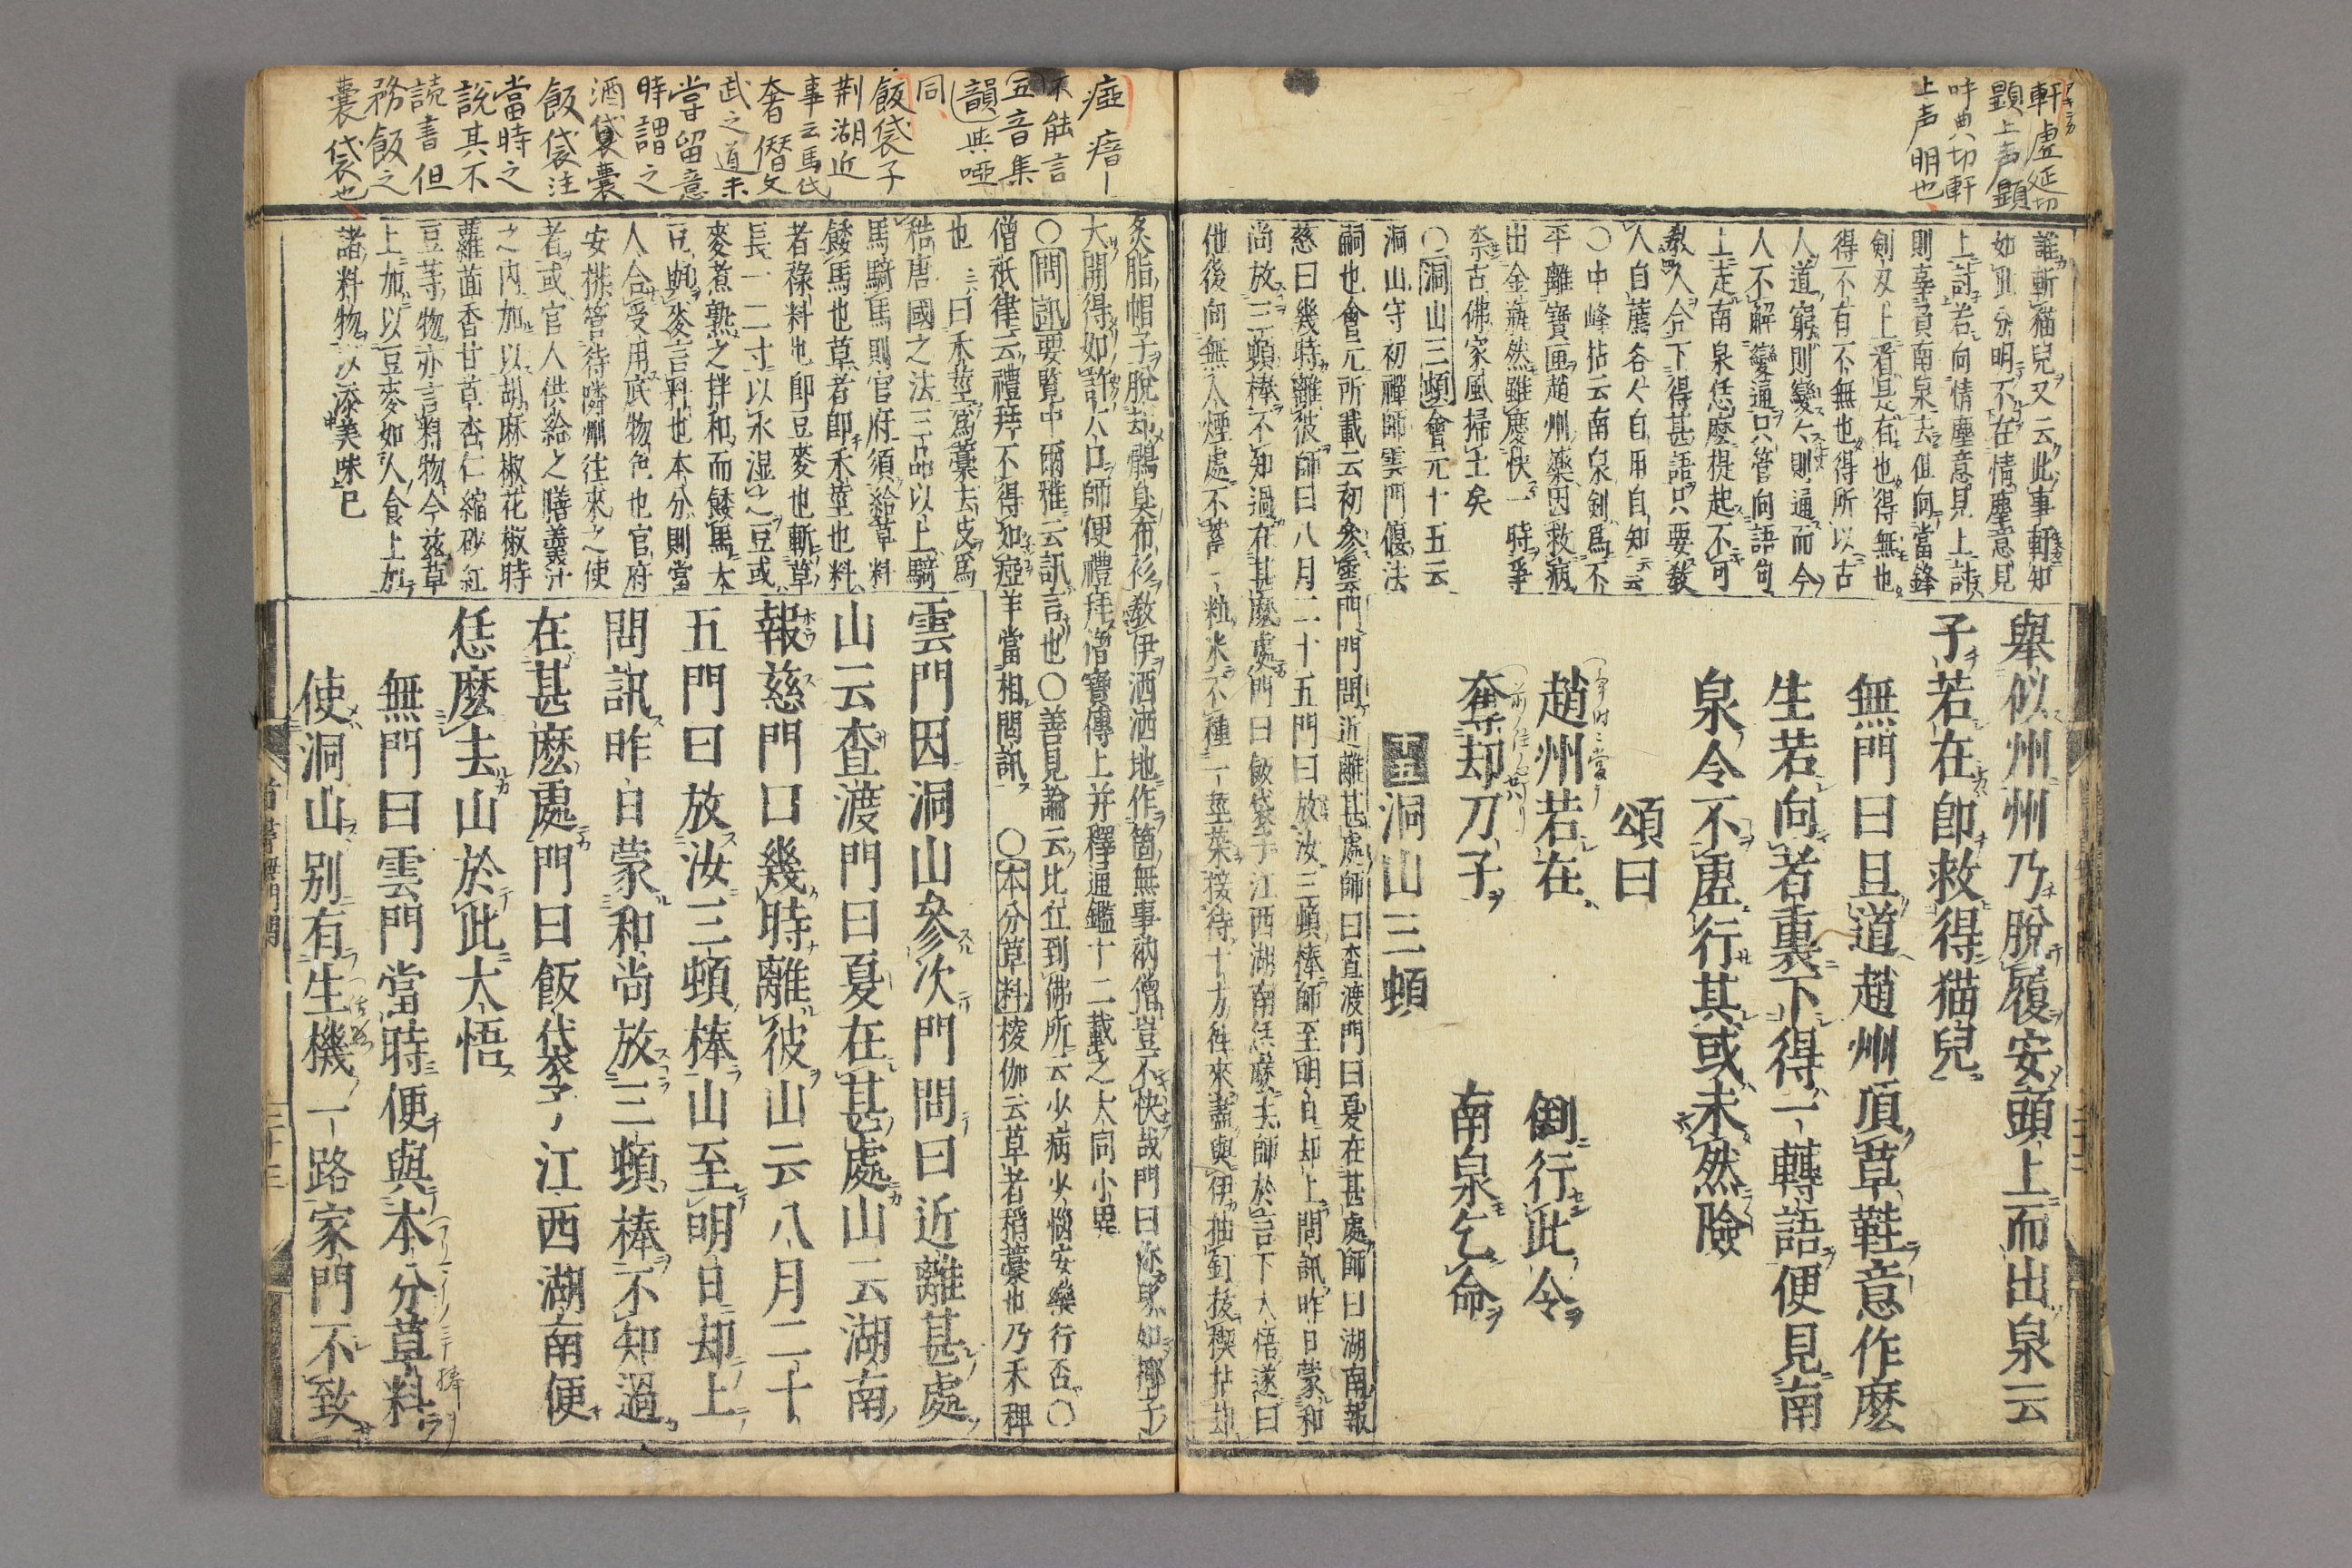 軒虚延切
顕上声顕
呼典切軒
上声明也
誰斬猫兒又云此事軒知
如此分明不在情塵意見
上討若向情塵意見上討
則辜負南泉去但向當鋒
劍刃上看是有也得無也
得不有不無也得所以古
人道窮則變變則通而今
人不解變通只管向語句
上走南泉恁麽提起不可
教人合下得甚語只要教
人自薦各各自用自知云云
○中峰拈云南泉劍爲不
平離寶匣趙州藥因救病
出金瓶然雖慶快一時爭
柰古佛家風掃土矣
○洞山三頓會元十五云
洞山守初禪師雲門偃法
嗣也會元所載云初參雲門門問近離甚處師曰査渡門曰夏在甚處師曰湖南報
慈曰幾時離彼師曰八月二十五門曰放汝三頓棒師至明日却上問訊昨日蒙和
尚放三頓棒不知過在甚麽處門曰飯袋子江西湖南恁麽去師於言下大悟遂曰
他後向無人煙處不蓄一粒米不種一莖菜接待十方徃來盡與伊抽釘拔楔拈却
擧似州州乃脱履安頭上而出泉云
子若在即救得猫兒
無門曰且道趙州頂草鞋意作麽
生若向者裏下得一轉語便見南
泉令不虚行其或未然險
頌曰
趙州若在　倒行此令
奪却刀子　南泉乞命
十五 洞山三頓
瘂瘖｜
不能言
五音集
韻與啞
同
飯袋子
荆湖近
事云馬氏
奢僭文
武之道未
嘗留意
時謂之
酒囊
飯袋注
當時之
説其不
読書但
務飯之
嚢袋也
炙脂帽子脱却鶻臭布衫教伊洒洒地作箇無事衲僧豈不快哉門曰你身如椰子
大開得如許大口師便禮拜僧寶傳上并釋通鑑十二載之大同小異
○問訊要覧中爾雅云訊言也○善見論云比丘到佛所云少病少惱安樂行否○
僧祇律云禮拜不得如瘂羊當相問訊　○本分草料梭伽云草者稍藁也乃禾稗
也　曰禾莖爲藁去皮爲
秸唐國之法三品以上騎
馬騎馬則官府須給草料
餧馬也草者即禾莖也料
者祿料也即豆麥也斬草
長一二寸以水湿之豆或
麥煮熟之拌和而餧馬大
豆與麥言料也本分則當
人合受用底物色也官府
安排管待隣州往來之使
者或官人供給之膳羹汁
之内加以胡麻椒花椒時
蘿茴香甘草杏仁縮砂紅
豆等物亦言料物今兹草
上加以豆麥如人食上加
諸料物以添美味已
雲門因洞山參次門問曰近離甚處
山云査渡門曰夏在甚處山云湖南
報慈門曰幾時離彼山云八月二十
五門曰放汝三頓棒山至明日却上
問訊昨日蒙和尚放三頓棒不知過
在甚麽處門曰飯袋子江西湖南便
恁麽去山於此大悟
無門曰雲門當時便與本分草料
使洞山別有生機一路家門不致